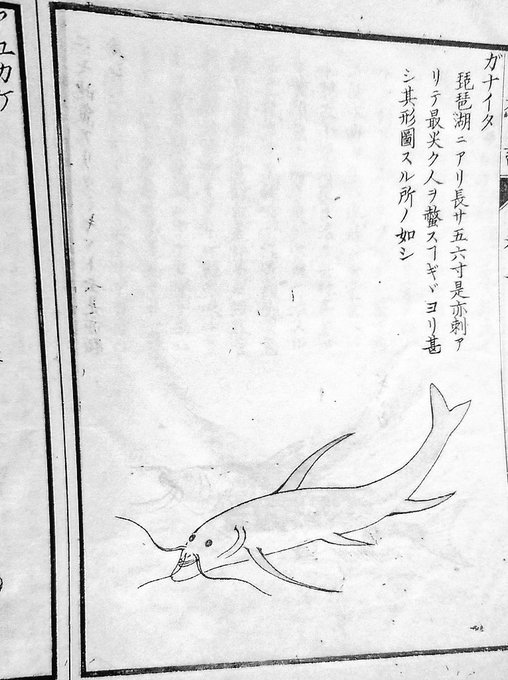 ガナイタ
琵琶湖ニアリ長サ五六寸是亦刺ア
リテ最尖ク人ヲ螫スヿギヾヨリ甚
シ其形圖スル所ノ如シ
ユカケ